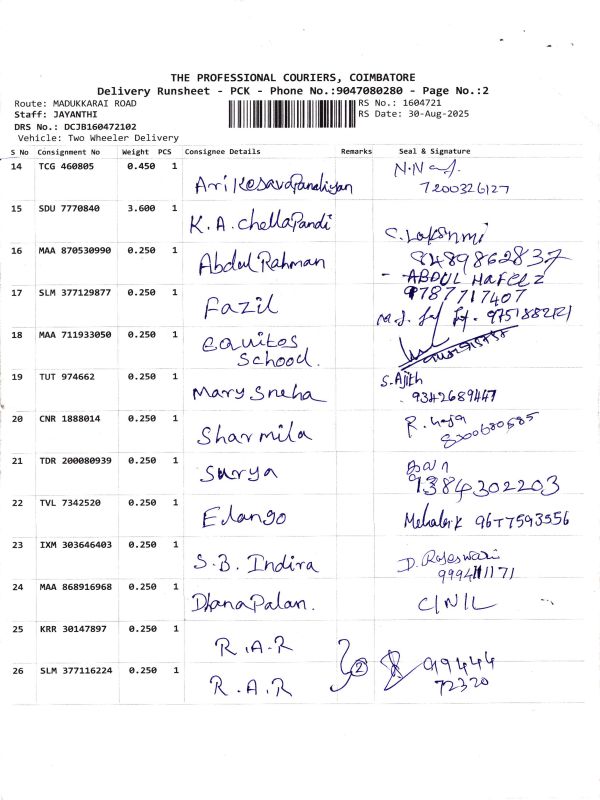 THE PROFESSIONAL COURIERS, COIMBATORE
Delivery Runsheet - PCK - Phone No.:9047080280 - Page No.:2
Route: MADUKKARAI ROAD
RS No.: 1604721
Staff: JAYANTHI
RS Date: 30-Aug-2025
DRS No.: DCJB160472102
Vehicle: Two Wheeler Delivery
S No Consignment No Weight PCS Consignee Details Remarks Seal & Signature
14 TCG 460805 0.450 1 Arikesavapandiyan
7200326127
15 SDU 7770840 3.600 1 K.A.chellaPandi C. Lakshmi
8489862837
16 MAA 870530990 0.250 1 Abdul Rahman - ABDUL HAFEEZ
9787717407
17 SLM 377129877 0.250 1 Fazil 9751882121
18 MAA 711933050 0.250 1 Equitos
School.
19 TUT 974662 0.250 1 Mary Sneha S.Ajith
9342689447
20 CNR 1888014 0.250 1 Sharmila R.
21 TDR 200080939 0.250 1 Surya
9384302203
22 TVL 7342520 0.250 1 Elango 9677593556
23 IXM 303646403 0.250 1 S.B. Indira D. Rajeswari
24 MAA 868916968 0.250 1 DhanaPalan. C/N/L
25 KRR 30147897 0.250 1 R.A.R
26 SLM 377116224 0.250 1 R.A.R 2 99444
72320